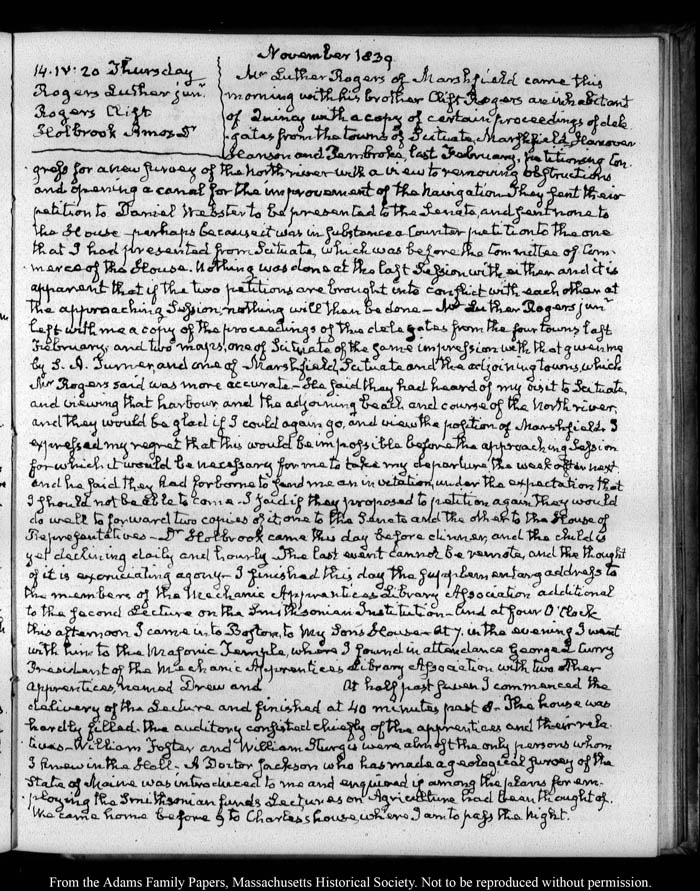 November 1839
14. IV: 20 Thursday
Rogers Luther junr
Rogers Clift
Holbrook Amos Dr
Mr Luther Rogers of Marshfield came this
morning with his brother Clift Rogers are inhabitant
of Quincy with a copy of certain proceedings of dele-
gates from the towns of Scituate, Marshfield, Hanover
Hanson and Pembroke, last February, petitioning Con-
gress for a new survey of the North river with a view to removing obstructions
and opening a canal for the improvement of the navigation. They sent their
petition to Daniel Webster to be presented to the Senate, and sent none to
the House—perhaps because it was in substance a Counter petition to the one
that I had presented from Scituate, which was before the Committee of Com-
merce of the House. Nothing was done at the last Session with either and it is
apparent that if the two petitions are brought into conflict with each other at
the approaching Session, nothing will then be done—Mr Luther Rogers junr
left with me a copy of the proceedings of the delegates from the four towns last
February, and two maps, one of Scituate of the same impression with that given me
by S. A. Turner, and one of Marshfield, Scituate and the adjoining towns which
Mr Rogers said was more accurate—He said they had heard of my visit to Scituate,
and viewing that harbour and the adjoining beach and course of the North river,
and they would be glad if I could again go, and view the position of Marshfield. I
expressed my regret that this would be impossible before the approaching Session
for which it would be necessary for me to take my departure the week after next.
and he said they had forborne to send me an invitation, under the expectation that
I should not be able to come—I said if they proposed to petition again they would
do well to forward two copies of it, one to the Senate and the other to the House of
Representatives—Dr Holbrook came this day before dinner, and the child is
yet declining daily and hourly—The last event cannot be remote, and the thought
of it is excruciating agony—I finished this day the supplementary address to
the members of the Mechanic Apprentices Library Association additional
to the second Lecture on the Smithsonian Institution—And at four O'Clock
this afternoon I came in to Boston, to my Sons House—At 7. in the evening I went
with him to the Masonic Temple, where I found in attendance George L Curry
President of the Mechanic Apprentice's Library Association with two other
apprentices, named Drew and At half past seven I commenced the
delivery of the Lecture and finished at 40 minutes past 8—The house was
hardly filled. the auditory consisted chiefly of the apprentices and their rela-
tives—William Foster and William Sturgis were almost the only persons whom
I knew in the Hall—A Doctor Jackson who has made a geological survey of the
State of Maine was introduced to me and enquired if among the plans for em-
ploying the Smithsonian funds Lectures on Agriculture had been thought of.
We came home before 9 to Charles's house, where I am to pass the Night.
From the Adams Family Papers, Massachusetts Historical Society. Not to be reproduced without permission.